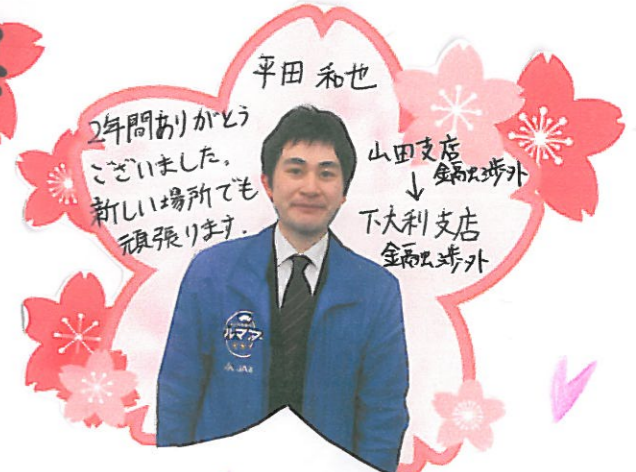 平田 和也
2年間ありがとう
ございました。
新しい場所でも
頑張ります.
山田支店
金融渉外
↓
下大利支店
金融渉外
ルマア